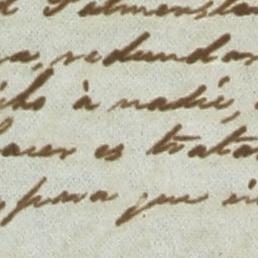 d Palmerston
a, redundar
icho à nadie,
hacer es tratar
, para que in